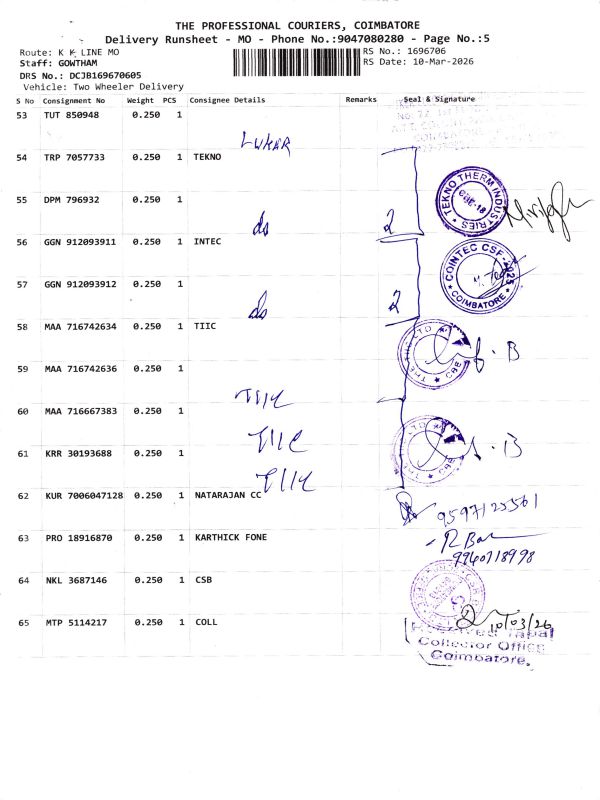 THE PROFESSIONAL COURIERS, COIMBATORE
Delivery Runsheet - MO - Phone No.:9047080280 - Page No.:5
Route: K K LINE MO
RS No.: 1696706
Staff: GOWTHAM
RS Date: 10-Mar-2026
DRS No.: DCJB169670605
Vehicle: Two Wheeler Delivery
S No Consignment No Weight PCS Consignee Details Remarks Seal & Signature
53 TUT 850948 0.250 1
54 TRP 7057733 0.250 1 TEKNO
TEKNO THERM INDUSTRIES
55 DPM 796932 0.250 1
do 2
56 GGN 912093911 0.250 1 INTEC
COINTEC CSF-2025
COIMBATORE
57 GGN 912093912 0.250 1
do 2
58 MAA 716742634 0.250 1 TIIC
THE TIIC LTD CBE
59 MAA 716742636 0.250 1
TIIC
60 MAA 716667383 0.250 1
TIIC
61 KRR 30193688 0.250 1
TIIC
62 KUR 7006047128 0.250 1 NATARAJAN CC
63 PRO 18916870 0.250 1 KARTHICK FONE
9940718998
64 NKL 3687146 0.250 1 CSB
65 MTP 5114217 0.250 1 COLL
10/03/26
Received Tapal
Collector Office
Coimbatore.